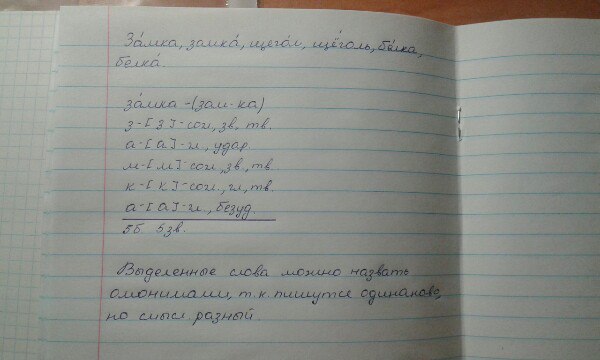 За́мка, замка́, щего́л, щёголь, бе́лка,
белка́.
за́мка -(зам-ка)
з-[з]-сог., зв., тв.
а-[а]-гл., удар.
м-[м]-сог., зв., тв.
к-[к]-сог., гл., тв.
а-[а]-гл., безуд.
5б. 5зв.
Выделенные слова можно назвать
омонимами, т.к. пишутся одинаково,
но смысл разный.